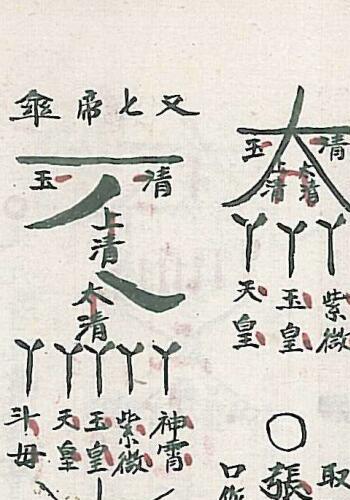 玉清
上清
太清
紫微
玉皇
天皇
取
張
口作
又七帝傘
玉清
上清
太清
神霄
紫微
玉皇
天皇
斗母